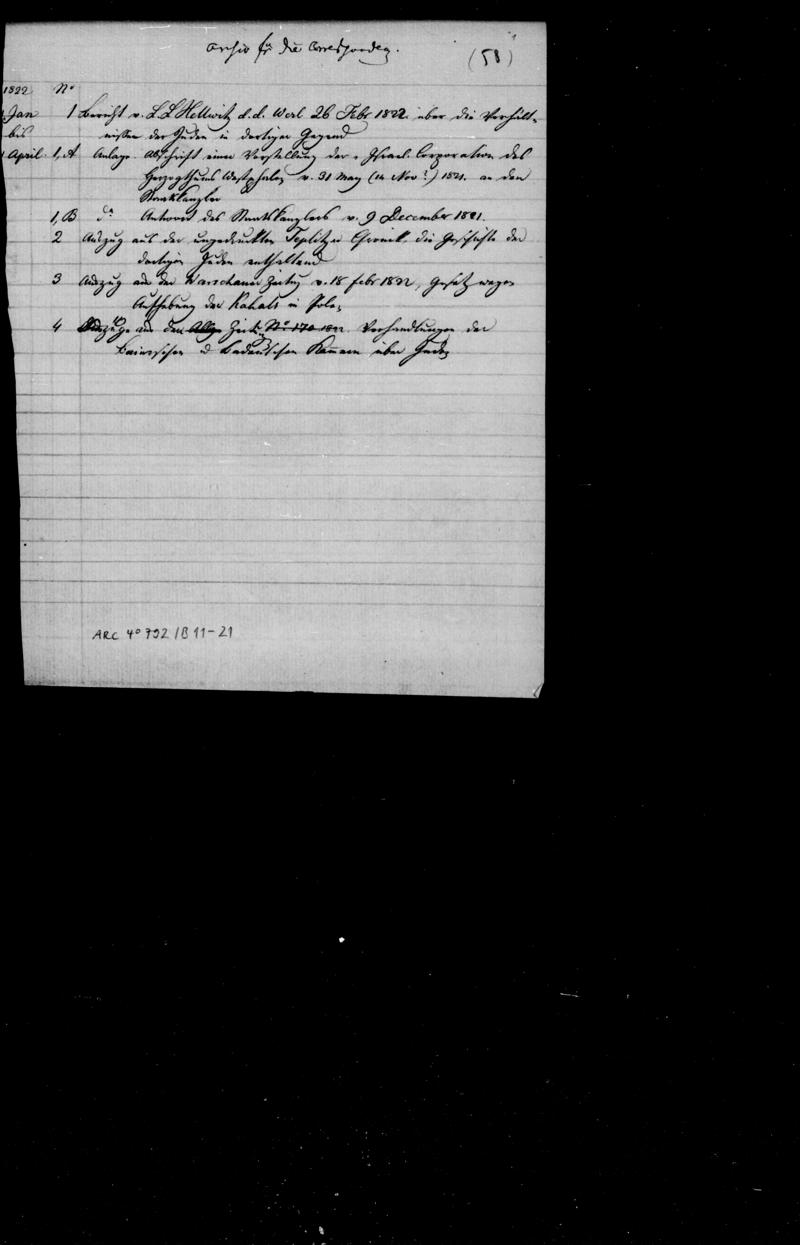 Archiv für die Correspondenz.
(58)
1822 No
Jan 1 Bericht v. L. L. Hellwitz d. d. Werl 26 Febr 1822 über die Verhält-
bis nissen der Juden in dortiger Gegend
April 1, A Anlage. Abschrift einer Vorstellung der Israel. Corporation des
Herzogthums Westphalen v. 31 May (14 Nov?) 1821. an den
Staatskanzler
1, B do Antwort des Staatskanzlers v. 9 December 1821.
2 Auszug aus der ungedruckten Teplitzer Chronik, die Geschichte der
dortigen Juden enthaltend
3 Auszug aus der Warschauer Zeitung v. 18 febr 1822, Gesetz wegen
Aufhebung der Kahals in Polen
4 Auszüge aus den Allge Zeit. No 170 1822. Verhandlungen der
Baierschen u Badenschen Kammern über Juden
ARC 4° 792 /B 11-21